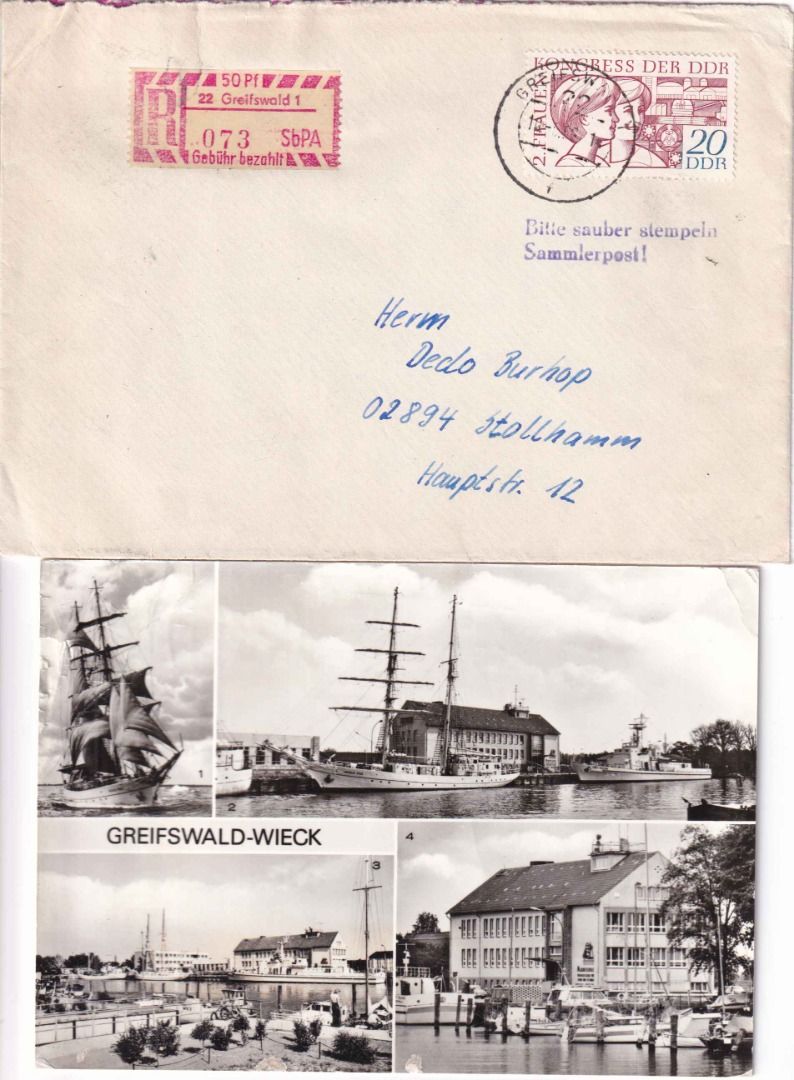 50 Pf
R
22 Greifswald 1
073 SbPA
Gebühr bezahlt
2. FRAUENKONGRESS DER DDR
20
DDR
GREIFSW
Bitte sauber stempeln
Sammlerpost!
Herrn
Dedo Burhop
02894 Stollhamm
Hauptstr. 12
1
2
GREIFSWALD-WIECK
3
4